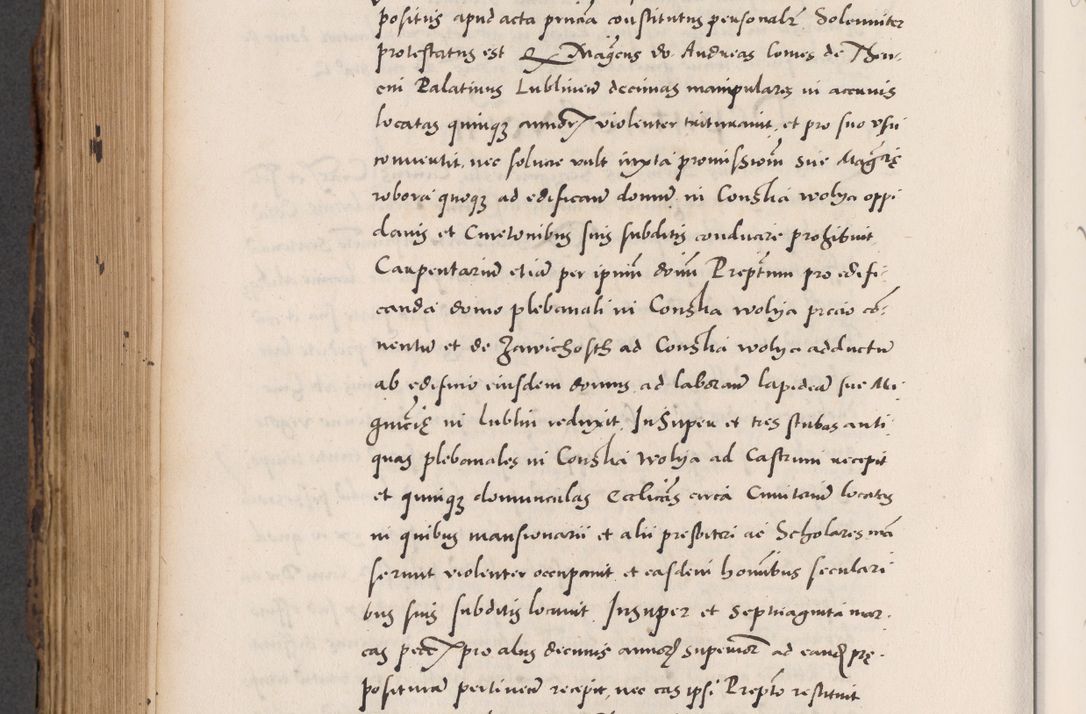 positus apud acta pn̄cia constitutus personalr̄ Solenniter
protestatus est Q Magcus dn̄s Andreas Comes de Then-
cni Palatinus Lublinen̄ decimas manipulares in acervis
locatas quinqȝ annorȝ violenter triturauit, et pro suo vsu
conuertit, nec soluere vult iuxta promissionē sue Magcię
robora quoqȝ ad edificanđ domū in Conską wolya oppi
danis et Cmetonibus suis subditis conducere prohibuit,
Carpentariū etiā per ipsum dn̄m Preptūm pro edifi-
canda domo plebanali in Conska wolya precio cō-
uentū et de Zawichosth ad Conską wolya adductū
ab edificio eiusdem domus ad laboranđ lapideā sue Ma-
gnicię in lublin reduxit, Insuper et tres stubas anti-
quas plebanales in Conska wolya ad Castrum recepit
et quinqȝ domunculas Ecclicas circa Ciuitatem locatas
in quibus mansionarii et alii presbiteri ac Scholares
seruiunt violenter occupauit, et easdem hominibus seculari
bus suis subditis locauit. Insuper et septuaginta mar-
cas pecȝ pro aliis decimis annorȝ superiorȝ ad eandē prę-
posituram pertinen̄ recepit, nec eas ipsi Prepto restituit